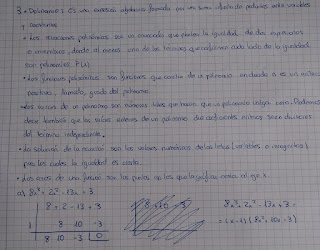 3.- Polinomio: Es una expresión algebraica formada por una suma de productos entre variables
y constantes.
• Las ecuaciones polinómicas son un enunciado que plantea la igualdad de dos expresiones
o miembros, donde al menos uno de los términos que conforman cada lado de la igualdad
son polinomios P(x)
• Las funciones polinómicas son funciones que constan de un polinomio en donde n es un entero
positivo, llamado grado del polinomio.
• Las raíces de un polinomio son números tales que hacen que un polinomio valga cero. Podemos
decir también que las raíces enteras de un polinomio de coeficientes enteros son divisores
del término independiente.
• La solución de la ecuación son los valores numéricos de las letras (variables o incógnitas)
para los cuales la igualdad es cierta.
• Las raíces de una función son los puntos en los que la gráfica corta al eje x.
a) 8x³ + 2x² - 13x + 3
8 + 2 - 13 + 3
1 8 10 -3
8 10 -3 0
8 10 -3
8x³ + 2x² - 13x + 3 =
(x-1) (8x² + 10x - 3)